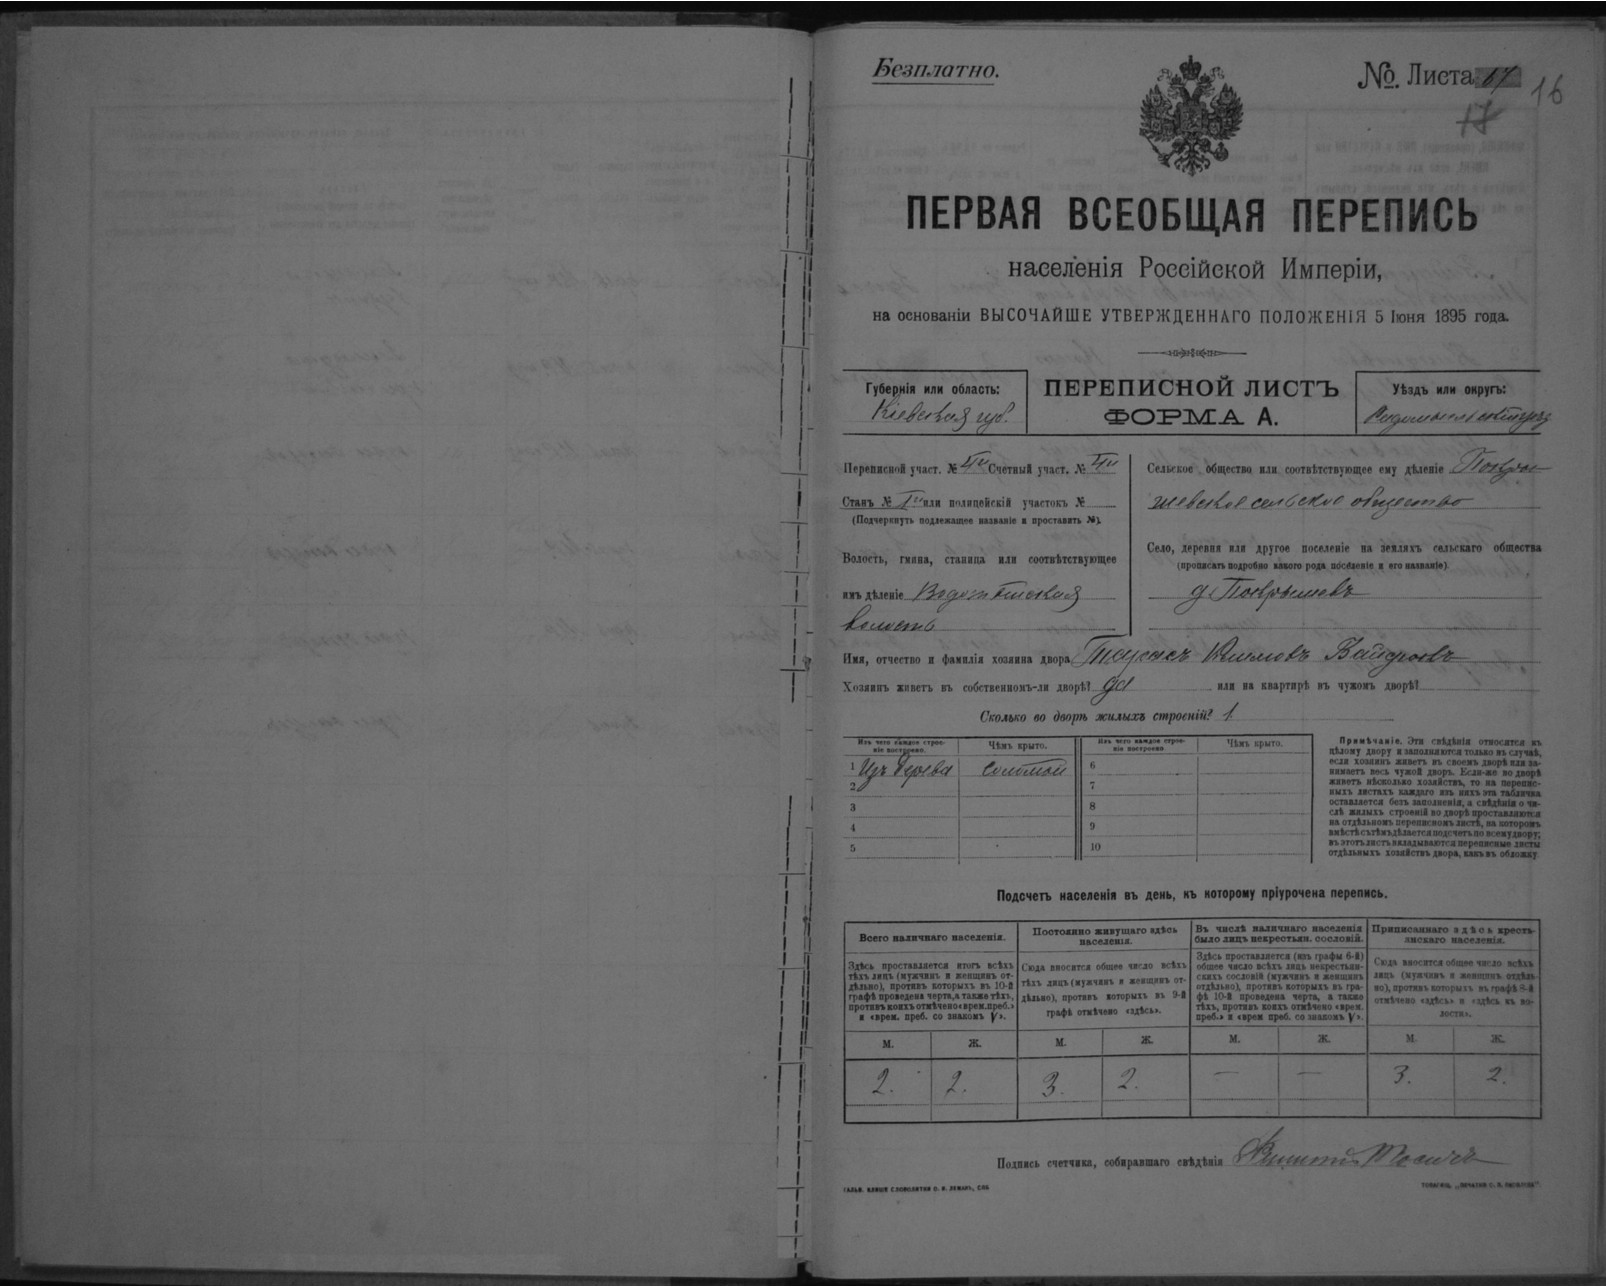 Безплатно.
№. Листа 17
16
17
ПЕРВАЯ ВСЕОБЩАЯ ПЕРЕПИСЬ
населенія Россійской Имперіи,
на основаніи ВЫСОЧАЙШЕ УТВЕРЖДЕННАГО ПОЛОЖЕНІЯ 5 Іюня 1895 года.
Губернія или область:
Кіевская губ.
ПЕРЕПИСНОЙ ЛИСТЪ
ФОРМА А.
Уѣздъ или округъ:
Переписной участ. № Счетный участ. №
Станъ № или полицейскій участокъ №
(Подчеркнуть подлежащее названіе и проставить №).
Волость, гмина, станица или соотвѣтствующее
имъ дѣленіе
волость
Сельское общество или соотвѣтствующее ему дѣленіе Покры-
шевское сельское общество
Село, деревня или другое поселеніе на земляхъ сельскаго общества
(прописать подробно какого рода поселеніе и его названіе)
д. Покрышевъ
Имя, отчество и фамилія хозяина двора Тарасъ Климовъ
Хозяинъ живетъ въ собственномъ-ли дворѣ? да или на квартирѣ въ чужомъ дворѣ?
Сколько во дворѣ жилыхъ строеній? 1
Изъ чего каждое строе-
ніе построено.
Чѣмъ крыто.
Изъ чего каждое строе-
ніе построено.
Чѣмъ крыто.
1 Изъ дерева соломой 6
2 7
3 8
4 9
5 10
Примѣчаніе. Эти свѣдѣнія относятся къ
цѣлому двору и заполняются только въ случаѣ,
если хозяинъ живетъ въ своемъ дворѣ или за-
нимаетъ весь чужой дворъ. Если-же во дворѣ
живетъ нѣсколько хозяйствъ, то на перепис-
ныхъ листахъ каждаго изъ нихъ эта табличка
оставляется безъ заполненія, а свѣдѣнія о чи-
слѣ жилыхъ строеній во дворѣ проставляются
на отдѣльномъ переписномъ листѣ, на которомъ
вмѣстѣ съ тѣмъ дѣлается подсчетъ по всему двору;
въ этотъ листъ вкладываются переписные листы
отдѣльныхъ хозяйствъ двора, какъ въ обложку.
Подсчетъ населенія въ день, къ которому пріурочена перепись.
Всего наличнаго населенія.
Здѣсь проставляется итогъ всѣхъ
тѣхъ лицъ (мужчинъ и женщинъ от-
дѣльно), противъ которыхъ въ 10-й
графѣ проведена черта, а также тѣхъ,
противъ коихъ отмѣчено «врем. преб.»
и «врем. преб. со знакомъ V».
Постоянно живущаго здѣсь
населенія.
Сюда вносится общее число всѣхъ
тѣхъ лицъ (мужчинъ и женщинъ от-
дѣльно), противъ которыхъ въ 9-й
графѣ отмѣчено «здѣсь».
Въ числѣ наличнаго населенія
было лицъ некрестьян. сословій.
Здѣсь проставляется (изъ графы 6-й)
общее число всѣхъ лицъ некрестьян-
скихъ сословій (мужчинъ и женщинъ
отдѣльно), противъ которыхъ въ гра-
фѣ 10-й проведена черта, а также
тѣхъ, противъ коихъ отмѣчено «врем.
преб.» и «врем преб. со знакомъ V».
Приписаннаго здѣсь кресть-
янскаго населенія.
Сюда вносится общее число всѣхъ
лицъ (мужчинъ и женщинъ отдѣль-
но), противъ которыхъ въ графѣ 8-й
отмѣчено «здѣсь» и «здѣсь въ во-
лости».
М. Ж. М. Ж. М. Ж. М. Ж.
2. 2. 3. 2. — — 3. 2.
Подпись счетчика, собиравшаго свѣдѣнія
ГАЛЬВ. КЛИШЕ СЛОВОЛИТНИ О. И. ЛЕМАНЪ, СПБ.